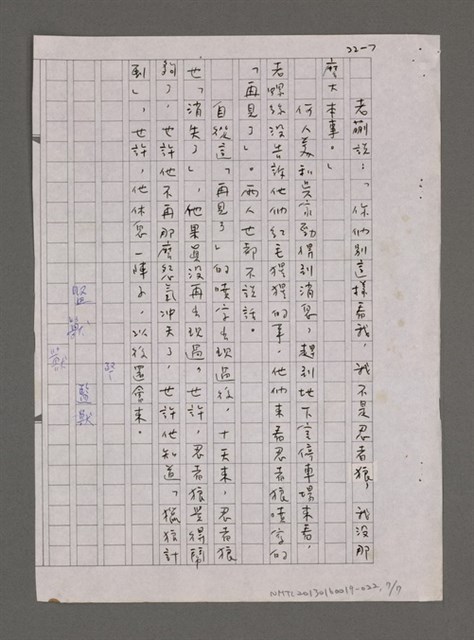 22-7
老蒯說:「你們別這樣看我,我不是忍者狼,我沒那
麼大本事。」
何人美和吳家勁得到消息,趕到地下室停車場來看,
老蒯沒告訴他們紅毛猩猩的事,他們來看忍者狼噴字的
「再見了」。兩人也都不說話。
自從這「再見了」的噴字出現過後,十天來,忍者狼
也「消失了」,他果真沒再出現過。也許,忍者狼覺得鬧
夠了,也許他不再那麼怨氣沖天了,也許他知道「獵狼計
到」,也許,他休息一陣子,以後還會來。
NMTL20130160019-022, 7/7